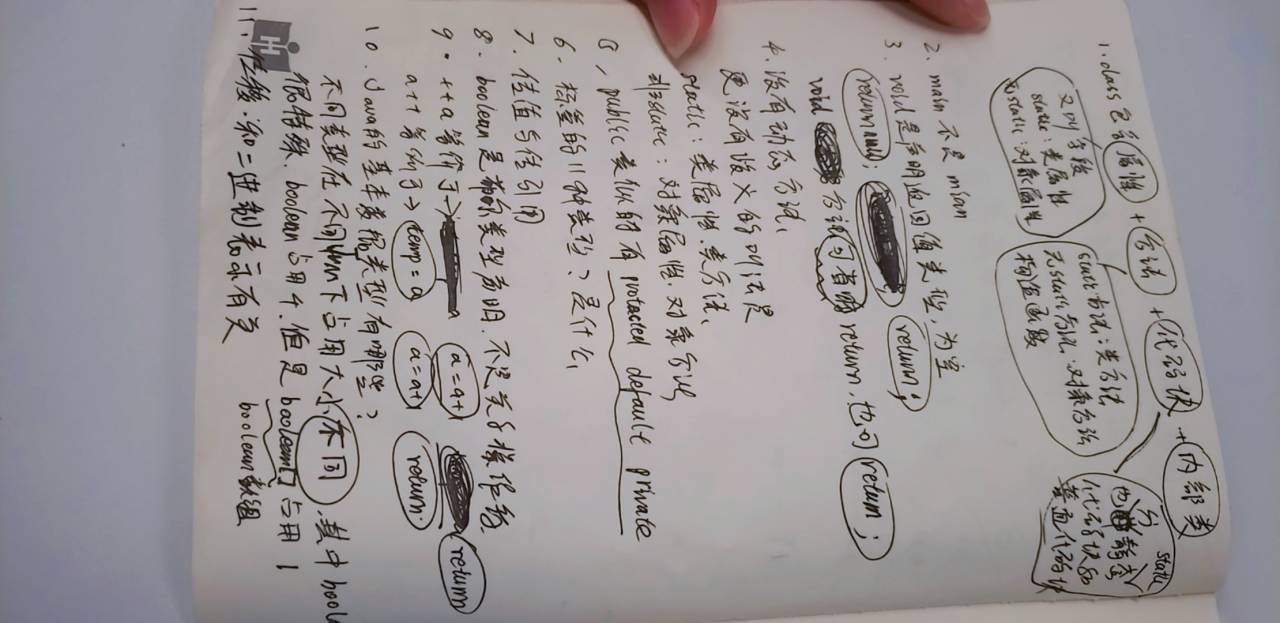 1. class包含属性 + 方法 + 代码块 + 内部类
又叫字段
static:类属性
无static:对象属性
static方法:类方法
无static方法:对象方法
构造函数
也分静态 static
代码块和
普通代码块
2. main 不是 mian
3. void是声明返回值类型,为空
return null; return;
void 方法可有 return,也可 return;
4. 没有动态方法、
更没有该义的叫法是
static:类属性、类方法、
非static:对象属性、对象方法
5、public 类似的有 protected default private
6. 标量的11种类型?是什么、
7. 传值与传引用
8. boolean是 类型声明.不是 操作数
9. ++a 等价于→ a=a+1 return
a++ 等价于→ temp=a a=a+1 return
10. Java的基本数据类型有哪些?
不同类型在不同 下占用大小不同.其中
很特殊、boolean占用4.但是boolean[]占用1
boolean数组
11. 位移.和二进制表示有关